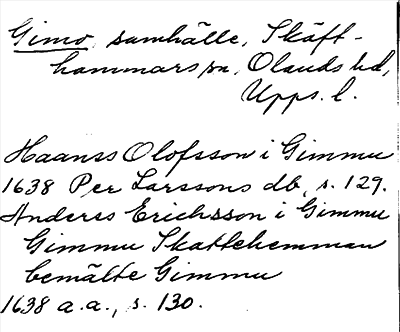 Gimo, samhälle, Skäft-
hammars sn, Olands hd,
Upps. l.
Haanss Olofsson i Gimmu
1638 Per Larssons db, s. 129.
Anderss Erichsson i Gimmu
Gimmu Skattehemman
bemälte Gimmu
1638 a.a., s. 130.